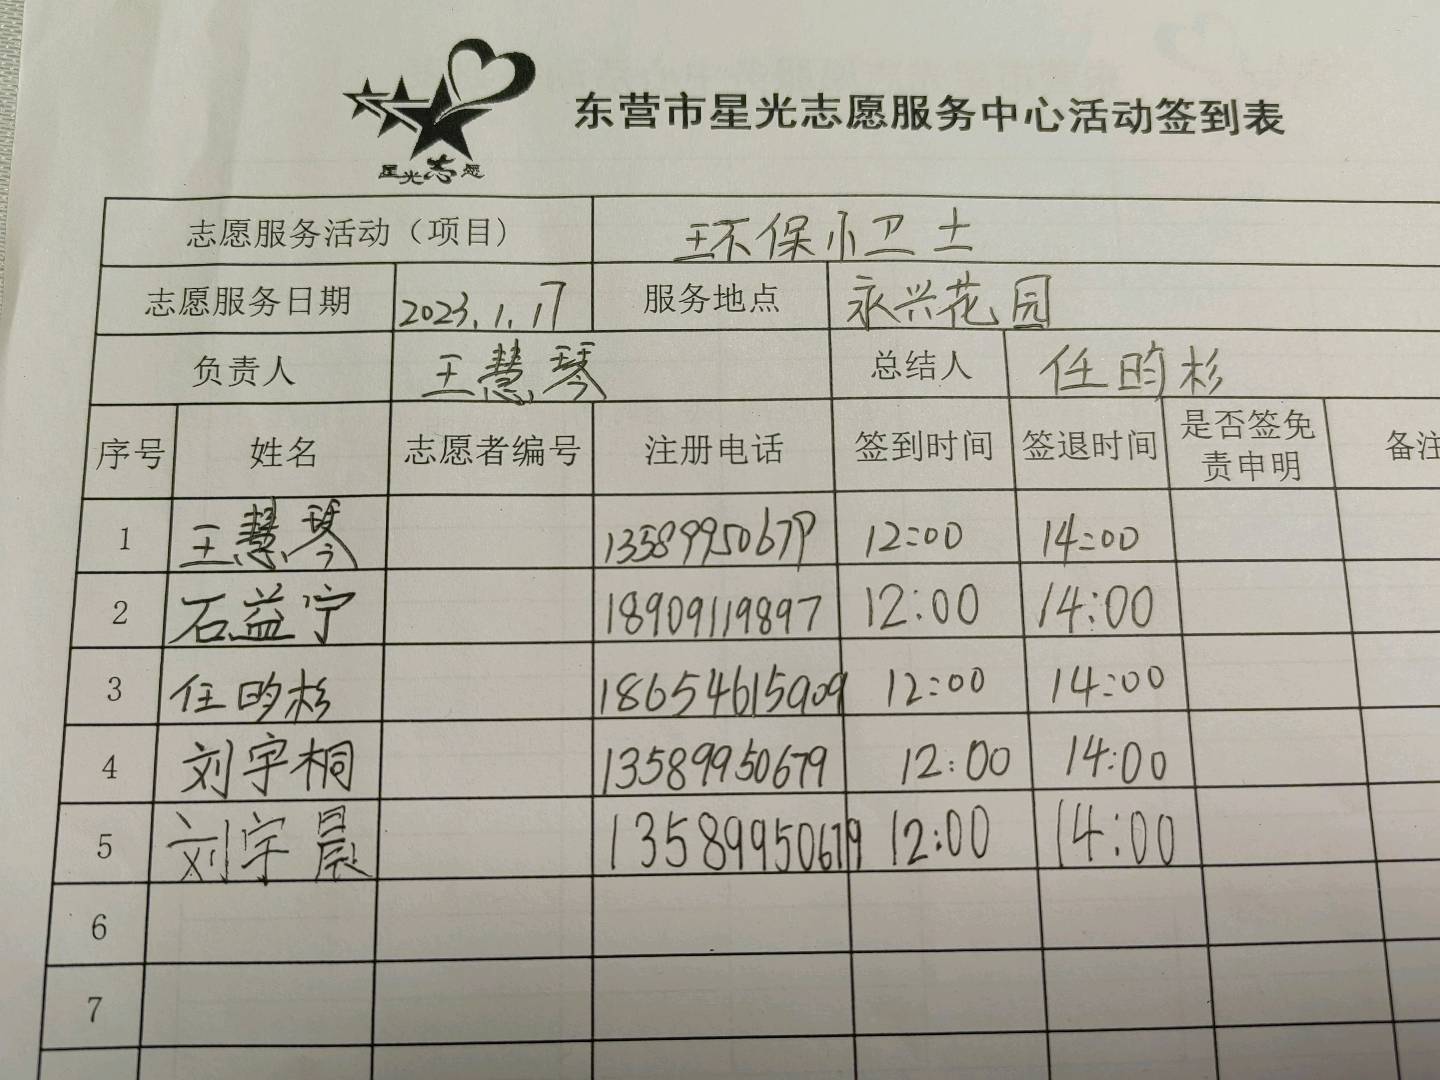 星光志愿
东营市星光志愿服务中心活动签到表
志愿服务活动（项目） 环保小卫士
志愿服务日期 2023.1.17 服务地点 永兴花园
负责人 王慧琴 总结人 任昀杉
序号 姓名 志愿者编号 注册电话 签到时间 签退时间 是否签免责申明 备注
1 王慧琴 13589950679 12:00 14:00
2 石益宁 18909119897 12:00 14:00
3 任昀杉 18654615909 12:00 14:00
4 刘宇桐 13589950679 12:00 14:00
5 刘宇晨 13589950679 12:00 14:00
6
7